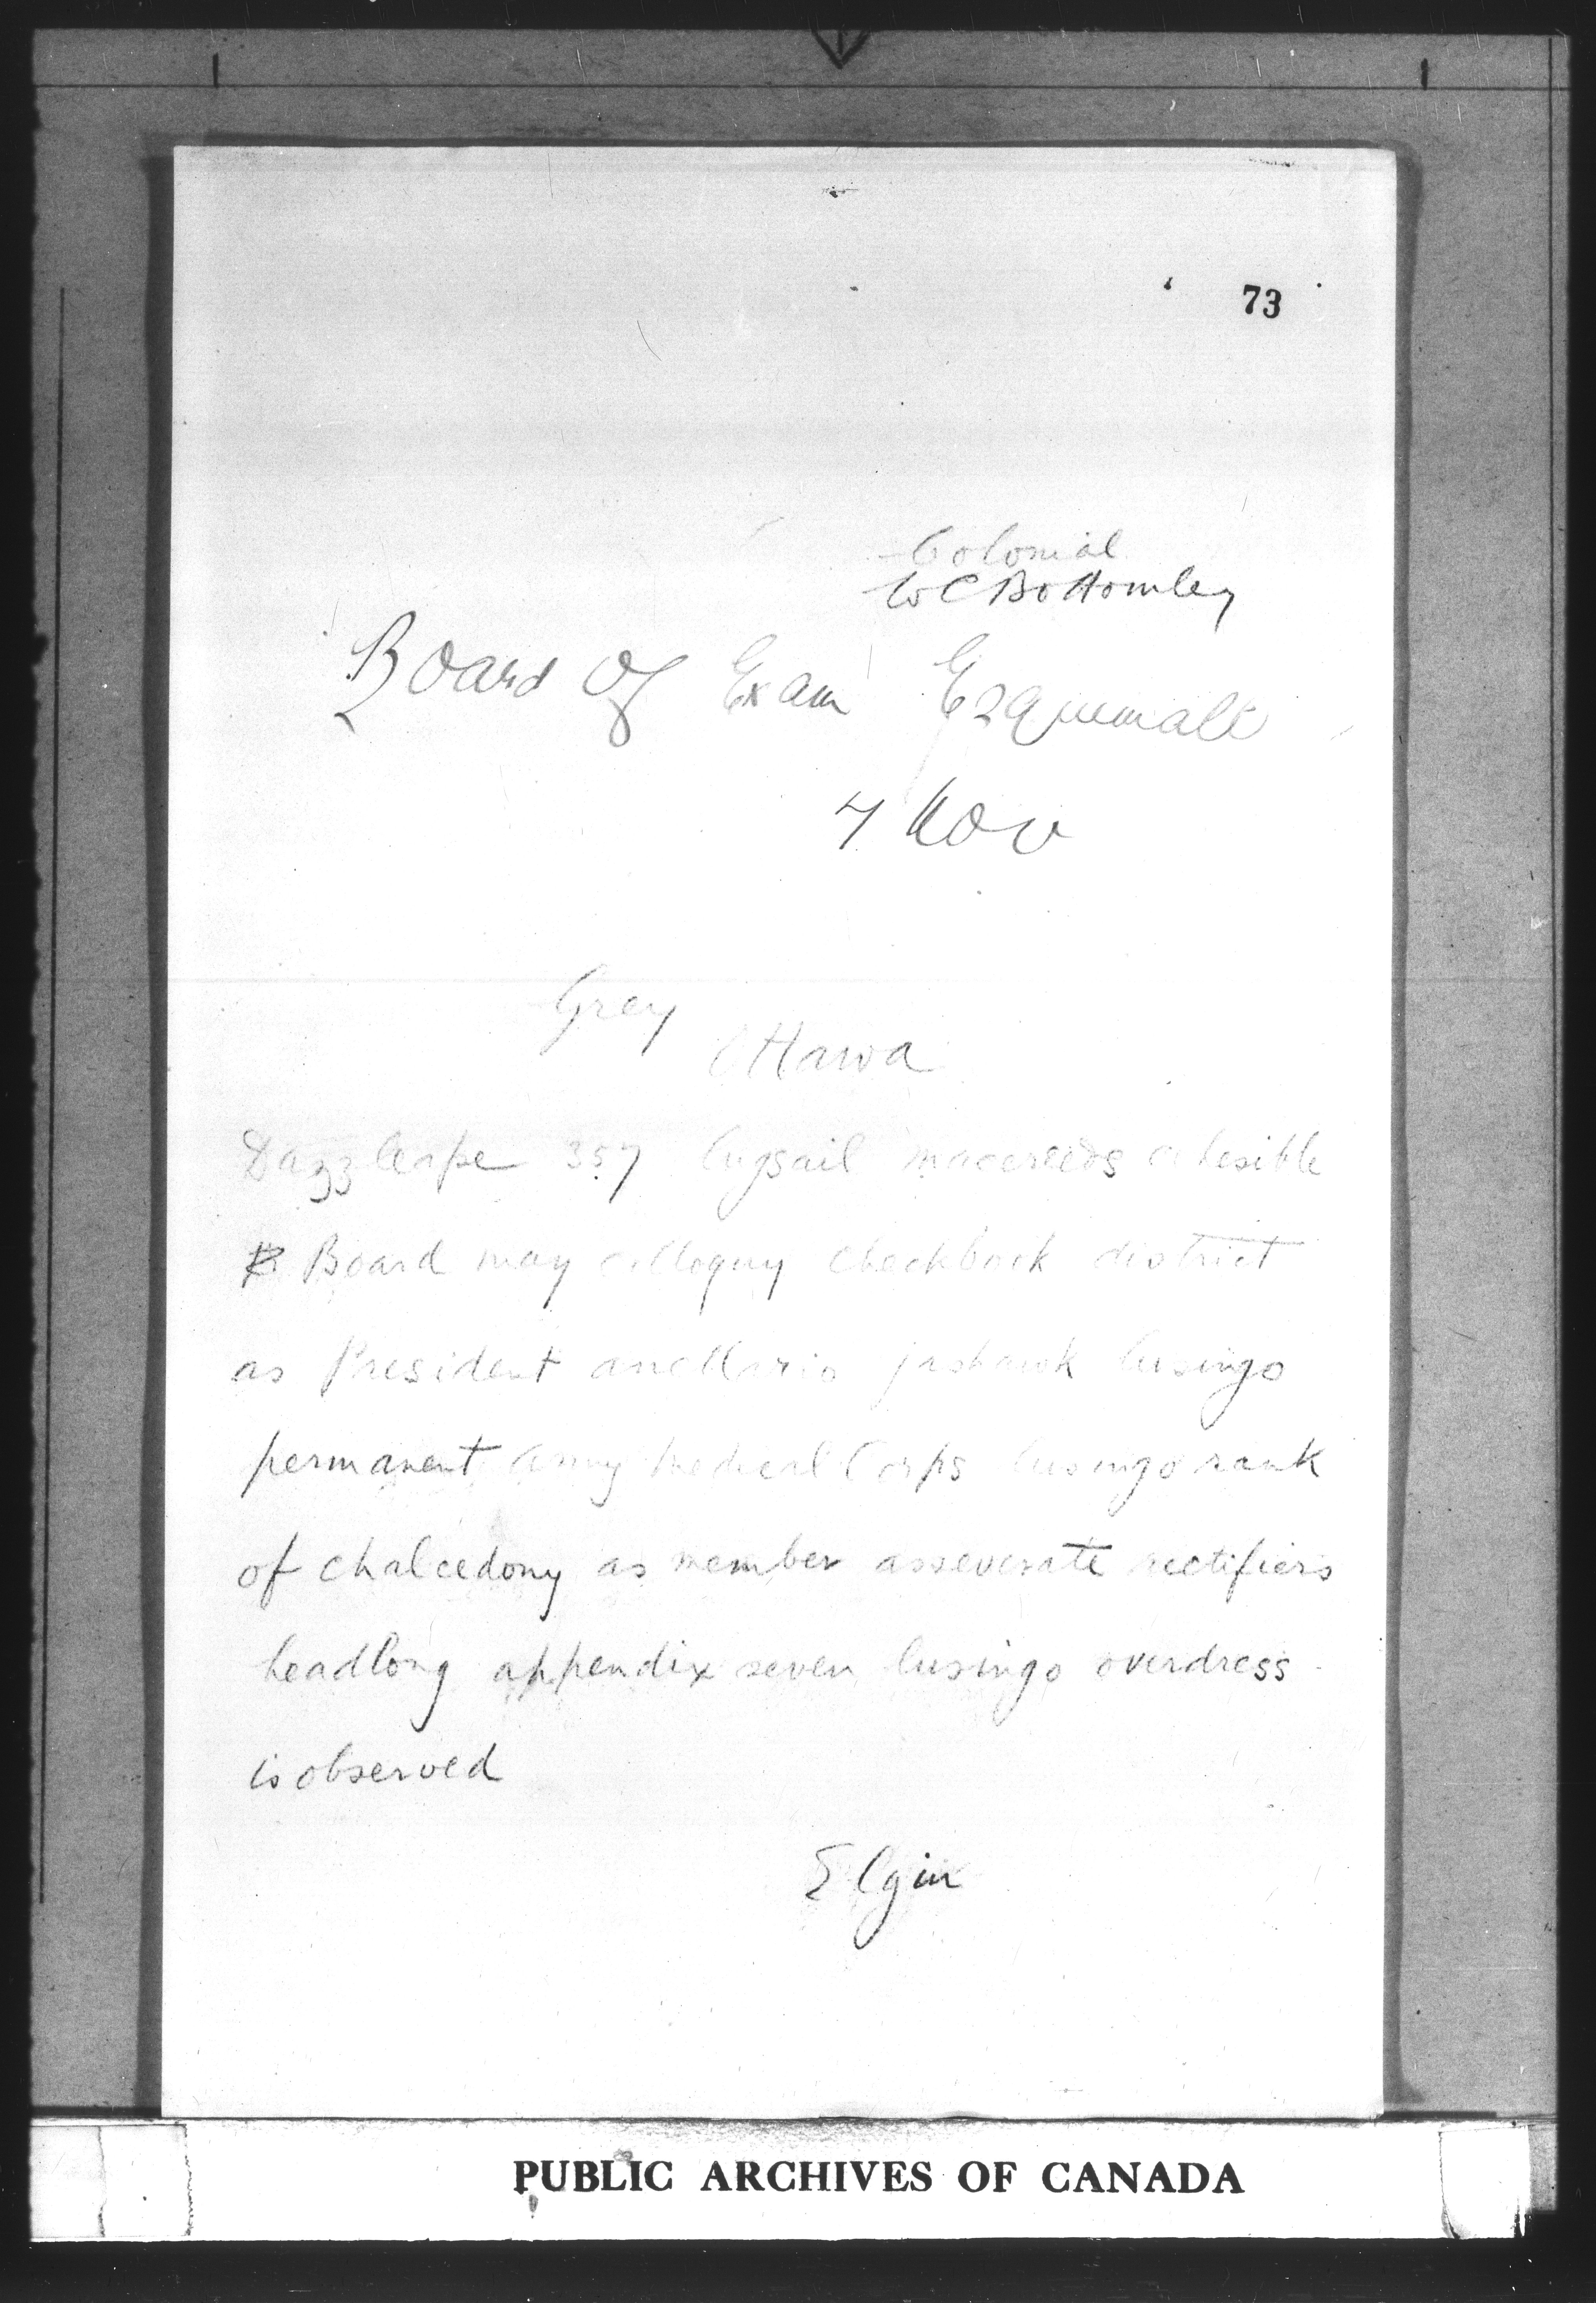 73
Colonial
W C Bottomley
Board of Exam Esquimalt
7 Nov
Grey
Ottawa
357 lugsail
Board may colloquy checkbook district
as President jashawk lusingo
permanent Army Medical Corps lusingo rank
of chalcedony as member asseverate rectifiers
headlong appendix seven lusingo overdress
is observed
Elgin
PUBLIC ARCHIVES OF CANADA